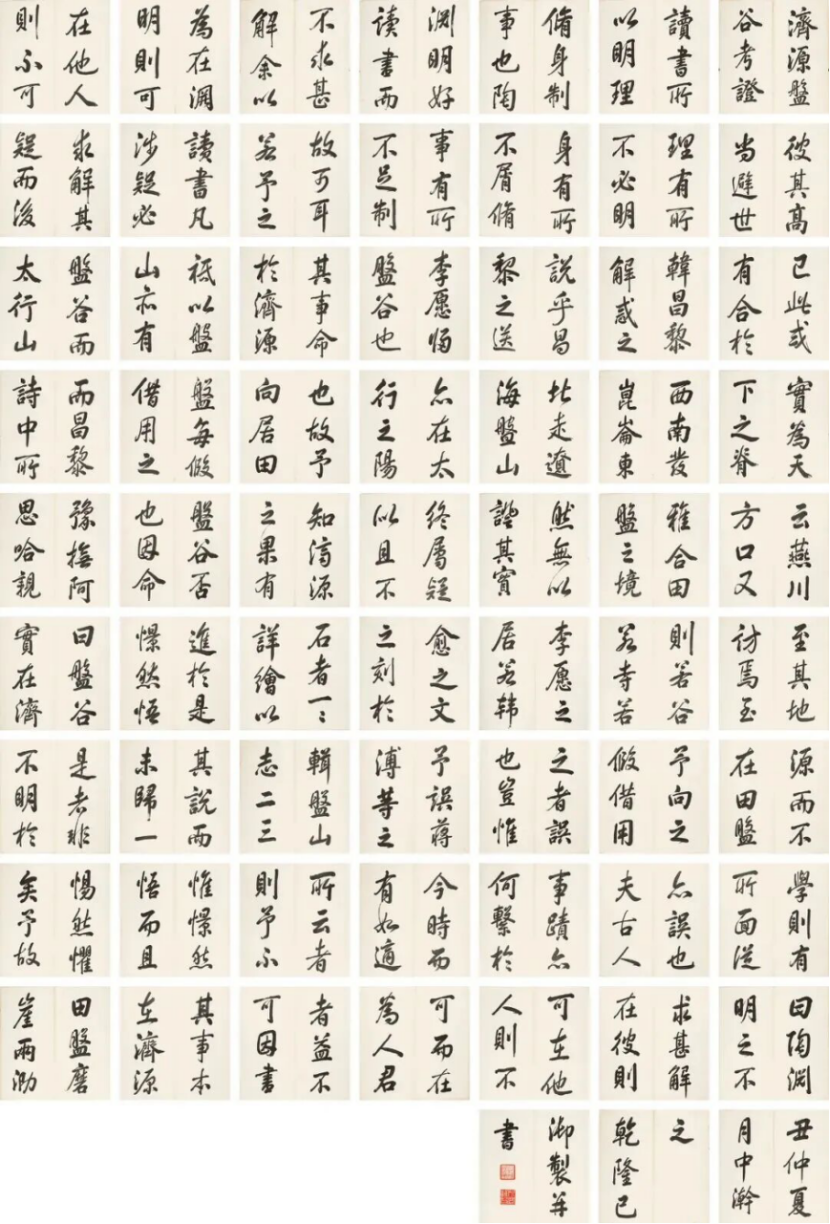 濟源盤
谷考證
讀書所
以明理
脩身制
事也陶
渊明好
读書而
不求甚
解余以
為在渊
明則可
在他人
則不可
彼其髙
尚避世
理有所
不必明
身有所
不屑脩
事有所
不足制
故可耳
若予之
讀書凡
涉疑必
求解其
疑而後
已此或
有合於
韓昌黎
解惑之
說乎昌
黎之送
李愿歸
盤谷也
其事命
於濟源
祗以盤
山亦有
盤谷而
太行山
實為天
下之脊
西南發
崑崙東
北走遼
海盤山
亦在太
行之陽
也故予
向居田
盤每假
借用之
而昌黎
詩中所
云燕川
方口又
雅合田
盤之境
然無以
證其實
終屬疑
似且不
知濟源
之果有
盤谷否
也因命
豫撫阿
思哈親
至其地
訪焉至
則若谷
若寺若
李愿之
居若韩
愈之文
之刻於
石者一〻
詳繪以
進於是
憬然悟
曰盤谷
實在濟
源而不
在田盤
予向之
假借用
之者誤
也豈惟
予誤蒋
溥等之
輯盤山
志二三
其說而
未歸一
是者非
不明於
學則有
所面從
亦誤也
夫古人
事蹟亦
何繫於
今時而
有如適
所云者
則予不
惟憬然
悟而且
惕然懼
矣予故
曰陶渊
明之不
求甚解
在彼則
可在他
人則不
可而在
為人君
者益不
可因書
其事本
在濟源
田盤磨
崖兩泐
之
乾隆己
丑仲夏
月中澣
御製并
書